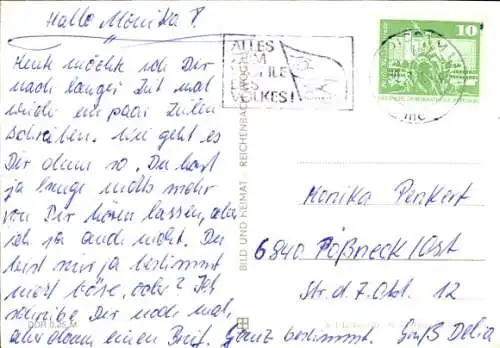 Hallo Monika P.
Heute möchte ich Dir
nach langer Zeit mal
wieder ein paar Zeilen
schreiben. Wie geht es
Dir denn so. Du hast
ja lange nichts mehr
von Dir hören lassen, aber
ich ja auch nicht. Du
bist mir ja bestimmt
nicht böse, oder? Ich
schreibe Dir noch mal,
aber dann einen Brief. Ganz bestimmt. Gruß Delia
DDR 0,25 M
BILD UND HEIMAT REICHENBACH
ALLES
ZUM
WOHLE
DES
VOLKES!
10
DEUTSCHE DEMOKRATISCHE REPUBLIK
Monika Penkert
6840 Pößneck/Ost
Str. d. 7. Okt. 12